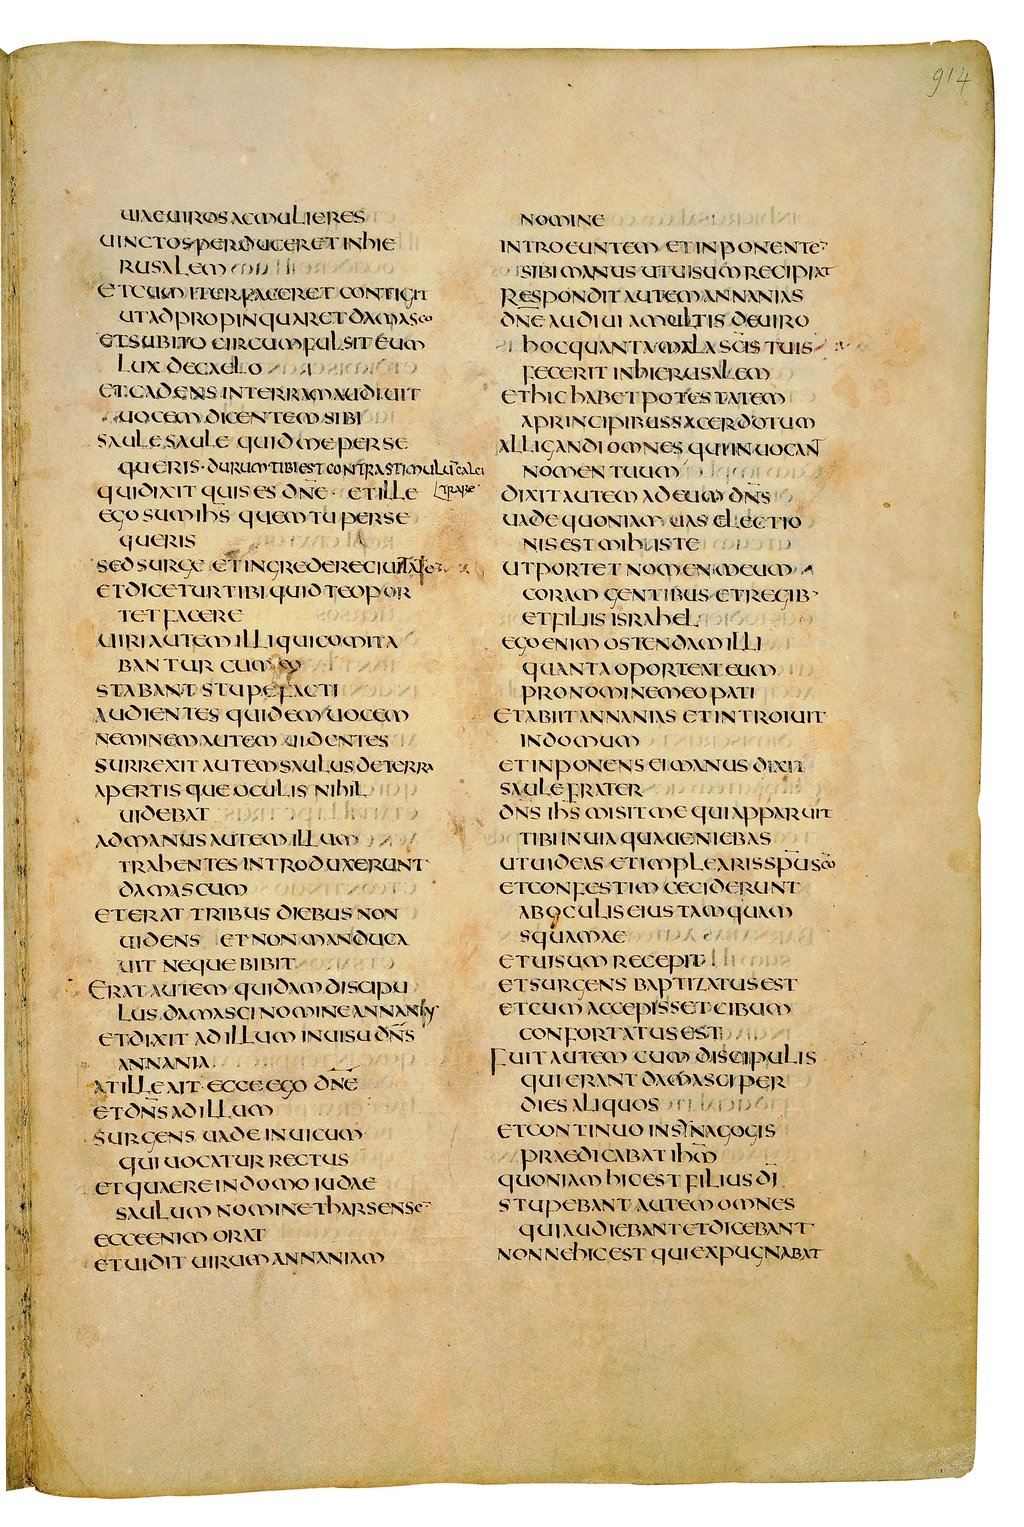 914
UIAE UIROS AC MULIERES
UINCTOS PERDUCERET IN HIE
RUSALEM
ET CUM ITER FACERET CONTIGIT
UT ADPROPINQUARET DAMASCO
ET SUBITO CIRCUMFULSIT EUM
LUX DE CAELO
ET CADENS IN TERRAM AUDIUIT
UOCEM DICENTEM SIBI
SAULE SAULE QUID ME PERSE
QUERIS · DURUM TIBI EST CONTRA STIMULŪ CALCI
TRARE
QUI DIXIT QUIS ES DN̄E · ET ILLE
EGO SUM IH̄S QUEM TU PERSE
QUERIS
SED SURGE ET INGREDERE CIUITA
ET DICETUR TIBI QUID TE OPOR
TET FACERE
UIRI AUTEM ILLI QUI COMITA
BANTUR CUM EO
STABANT STUPEFACTI
AUDIENTES QUIDEM UOCEM
NEMINEM AUTEM UIDENTES
SURREXIT AUTEM SAULUS DE TERRA
APERTISQUE OCULIS NIHIL
UIDEBAT
AD MANUS AUTEM ILLUM
TRAHENTES INTRODUXERUNT
DAMASCUM
ET ERAT TRIBUS DIEBUS NON
UIDENS ET NON MANDUCA
UIT NEQUE BIBIT
ERAT AUTEM QUIDAM DISCIPU
LUS DAMASCI NOMINE ANNANIAS
ET DIXIT AD ILLUM IN UISU DN̄S
ANNANIA
AT ILLE AIT ECCE EGO DN̄E
ET DN̄S AD ILLUM
SURGENS UADE IN UICUM
QUI UOCATUR RECTUS
ET QUAERE IN DOMO IUDAE
SAULUM NOMINE THARSENSĒ
ECCE ENIM ORAT
ET UIDIT UIRUM ANNANIAM
NOMINE
INTROEUNTEM ET INPONENTĒ
SIBI MANUS UT UISUM RECIPIAT
RESPONDIT AUTEM ANNANIAS
DN̄E AUDIUI A MULTIS DE UIRO
HOC QUANTA MALA SC̄IS TUIS
FECERIT IN HIERUSALEM
ET HIC HABET POTESTATEM
A PRINCIPIBUS SACERDOTUM
ALLIGANDI OMNES QUI INUOCANT
NOMEN TUUM
DIXIT AUTEM AD EUM DN̄S
UADE QUONIAM UAS ELECTIO
NIS EST MIHI ISTE
UT PORTET NOMEN MEUM
CORAM GENTIBUS ET REGIB·
ET FILIIS ISRAHEL
EGO ENIM OSTENDAM ILLI
QUANTA OPORTEAT EUM
PRO NOMINE MEO PATI
ET ABIIT ANNANIAS ET INTROIUIT
IN DOMUM
ET INPONENS EI MANUS DIXIT
SAULE FRATER
DN̄S IH̄S MISIT ME QUI APPARUIT
TIBI IN UIA QUA UENIEBAS
UT UIDEAS ET IMPLEARIS SP̄U SC̄O
ET CONFESTIM CECIDERUNT
AB OCULIS EIUS TAMQUAM
SQUAMAE
ET UISUM RECEPIT
ET SURGENS BAPTIZATUS EST
ET CUM ACCEPISSET CIBUM
CONFORTATUS EST
FUIT AUTEM CUM DISCIPULIS
QUI ERANT DAMASCI PER
DIES ALIQUOS
ET CONTINUO IN SYNAGOGIS
PRAEDICABAT IH̄M
QUONIAM HIC EST FILIUS D̄I
STUPEBANT AUTEM OMNES
QUI AUDIEBANT ET DICEBANT
NONNE HIC EST QUI EXPUGNABAT